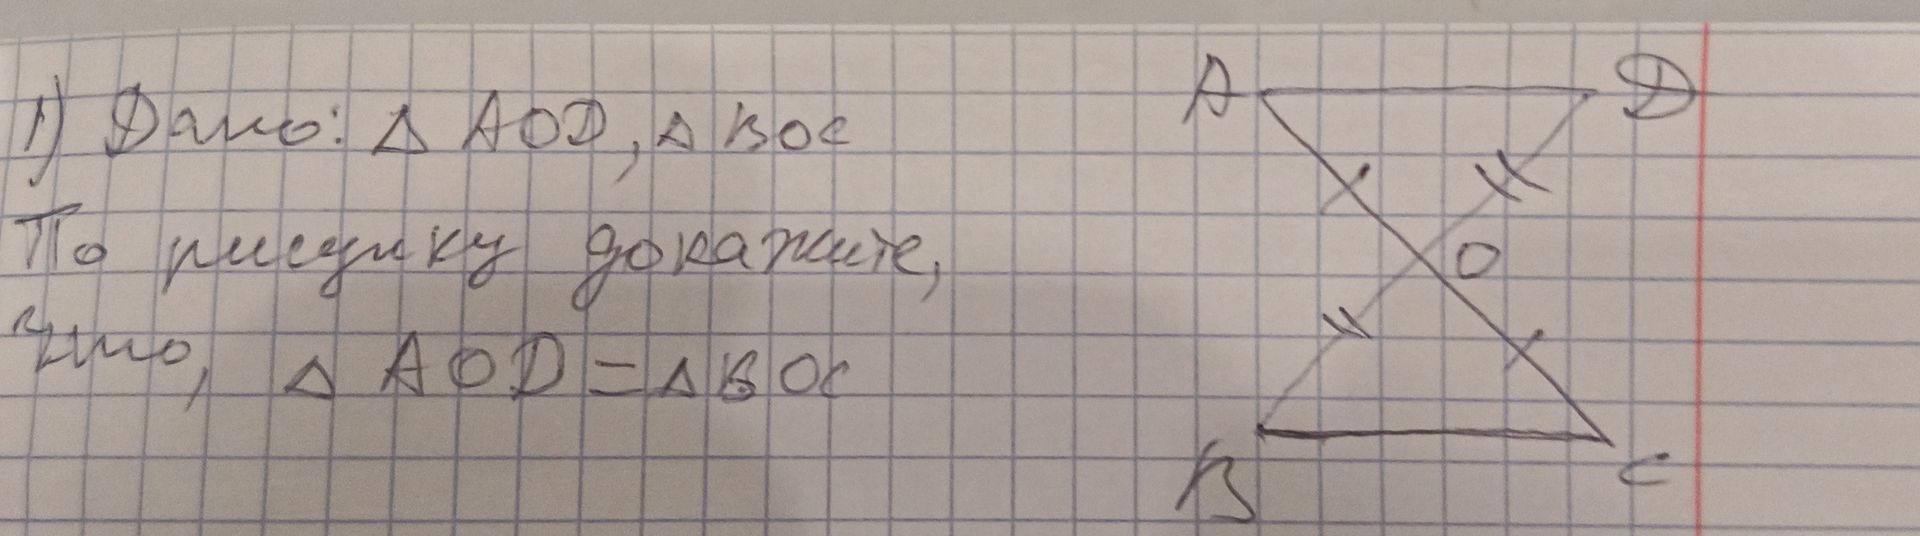 1) Дано: △ AOD, △ BOC
По рисунку докажите,
что, △ AOD = △ BOC
A
D
O
B
C